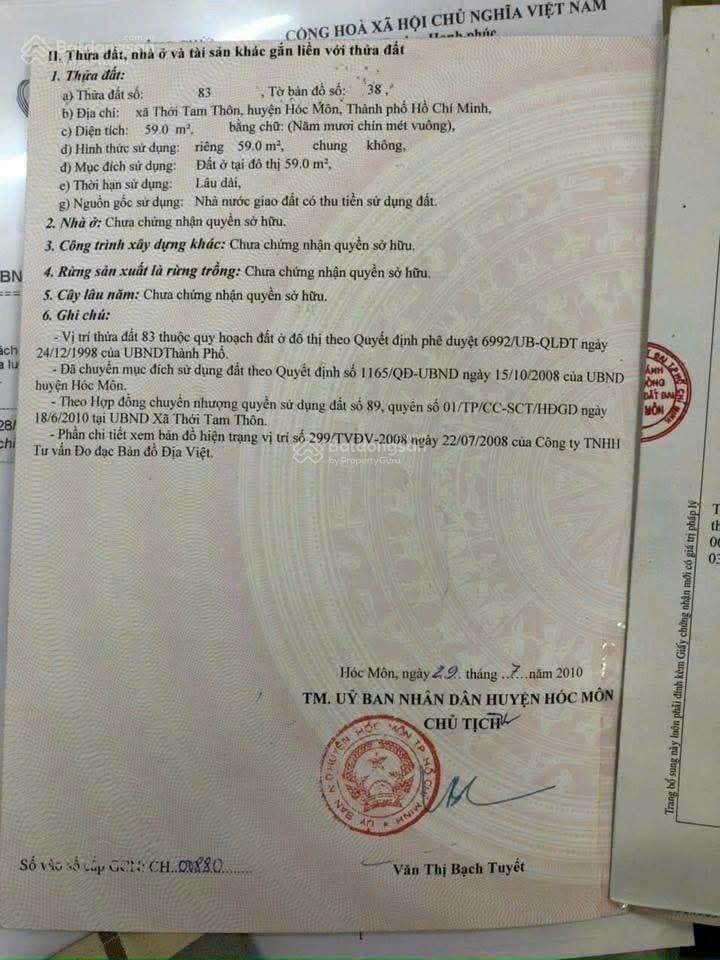 CỘNG HOÀ XÃ HỘI CHỦ NGHĨA VIỆT NAM
Hạnh phúc
II. Thửa đất, nhà ở và tài sản khác gắn liền với thửa đất
1. Thửa đất:
a) Thửa đất số: 83 , Tờ bản đồ số: 38 ,
b) Địa chỉ: xã Thới Tam Thôn, huyện Hóc Môn, Thành phố Hồ Chí Minh,
c) Diện tích: 59.0 m², bằng chữ: (Năm mươi chín mét vuông),
d) Hình thức sử dụng: riêng 59.0 m², chung không,
đ) Mục đích sử dụng: Đất ở tại đô thị 59.0 m²,
e) Thời hạn sử dụng: Lâu dài,
g) Nguồn gốc sử dụng: Nhà nước giao đất có thu tiền sử dụng đất.
2. Nhà ở: Chưa chứng nhận quyền sở hữu.
3. Công trình xây dựng khác: Chưa chứng nhận quyền sở hữu.
4. Rừng sản xuất là rừng trồng: Chưa chứng nhận quyền sở hữu.
5. Cây lâu năm: Chưa chứng nhận quyền sở hữu.
6. Ghi chú:
- Vị trí thửa đất 83 thuộc quy hoạch đất ở đô thị theo Quyết định phê duyệt 6992/UB-QLĐT ngày
24/12/1998 của UBNDThành Phố.
- Đã chuyển mục đích sử dụng đất theo Quyết định số 1165/QĐ-UBND ngày 15/10/2008 của UBND
huyện Hóc Môn.
- Theo Hợp đồng chuyển nhượng quyền sử dụng đất số 89, quyển số 01/TP/CC-SCT/HĐGD ngày
18/6/2010 tại UBND Xã Thới Tam Thôn.
- Phần chi tiết xem bản đồ hiện trạng vị trí số 299/TVĐV-2008 ngày 22/07/2008 của Công ty TNHH
Tư vấn Đo đạc Bản đồ Địa Việt.
Batdongsan
by PropertyGuru
Hóc Môn, ngày 29 tháng 7 năm 2010
TM. UỶ BAN NHÂN DÂN HUYỆN HÓC MÔN
CHỦ TỊCH
ỦY BAN N.D HUYỆN HÓC MÔN T.P HỒ CHÍ MINH
Văn Thị Bạch Tuyết
Số vào sổ cấp GCN: CH 00880
Trang bổ sung này luôn phải đính kèm Giấy chứng nhận mới có giá trị pháp lý